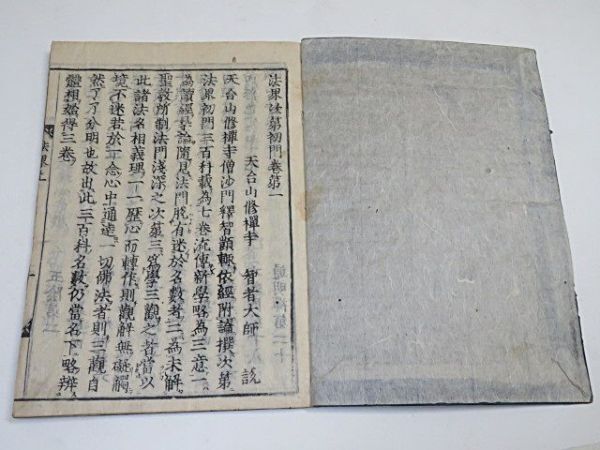 法界次第初門卷第一
天台山修禪寺　智者大師　說
天台山修禪寺僧沙門釋智顗輒依經附論撰次第
法界初門三百科裁為七卷流傳新學略為三意一
為讀經尋論隨見法門脫有迷於名數者二為未解
聖教所制法門淺深之次第三為學三觀之者當以
此諸法名相義理一一歷心而轉作則觀解無礙觸
境不迷若於一念心中通達一切佛法者則三觀自
然了了分明也故出此三百科名數仍當名下略辨
體想始得三卷
法界上